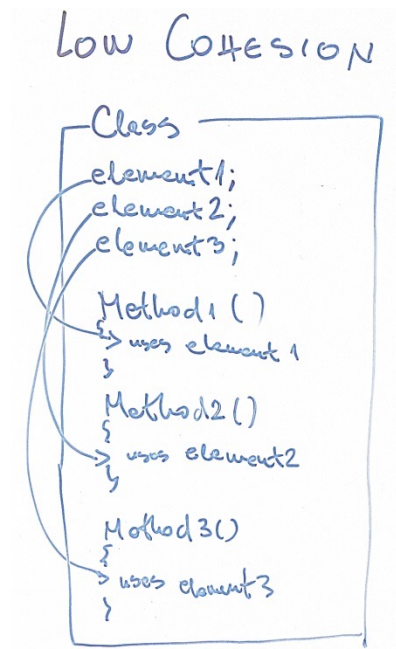 LOW COHESION
Class
element1;
element2;
element3;
Method1()
{
> uses element1
}
Method2()
{
> uses element2
}
Method3()
{
> uses element3
}